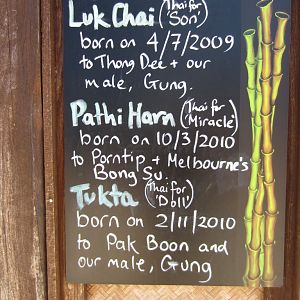 Luk Chai (Thai for 'Son')
born on 4/7/2009
to Thong Dee + our
male, Gung.
Pathi Harn (Thai for 'Miracle')
born on 10/3/2010
to Porntip + Melbourne's
Bong Su.
Tukta (Thai for 'Doll')
born on 2/11/2010
to Pak Boon and
our male, Gung